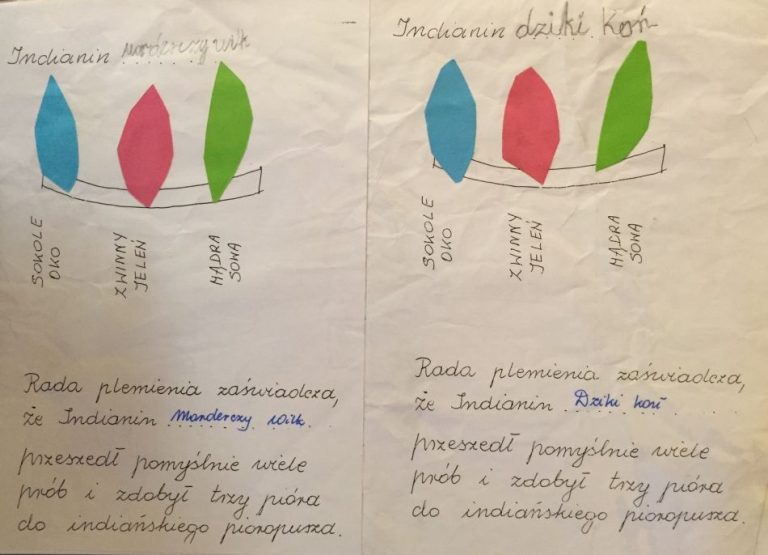 Indianin
SOKOLE
OKO
ZWINNY
JELEŃ
MĄDRA
SOWA
Rada plemienia zaświadcza,
że Indianin Morderczy wilk
przeszedł pomyślnie wiele
prób i zdobył trzy pióra
do indiańskiego pióropusza.
Indianin dziki Koń
SOKOLE
OKO
ZWINNY
JELEŃ
MĄDRA
SOWA
Rada plemienia zaświadcza,
że Indianin Dziki koń
przeszedł pomyślnie wiele
prób i zdobył trzy pióra
do indiańskiego pióropusza.